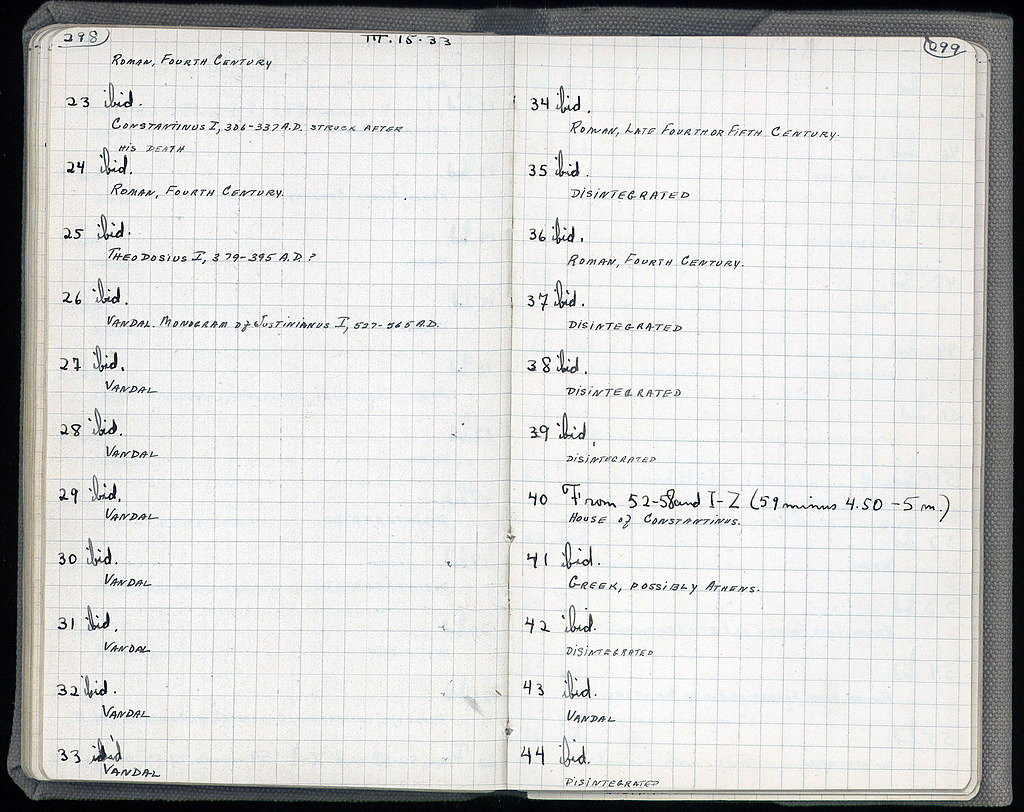 298
III.15.33
ROMAN, FOURTH CENTURY
23 ibid.
CONSTANTINUS I, 306-337 A.D. STRUCK AFTER
HIS DEATH
24 ibid.
ROMAN, FOURTH CENTURY.
25 ibid.
THEODOSIUS I, 379-395 A.D.?
26 ibid.
VANDAL. MONOGRAM of JUSTINIANUS I, 527-565 A.D.
27 ibid.
VANDAL
28 ibid.
VANDAL
29 ibid.
VANDAL
30 ibid.
VANDAL
31 ibid.
VANDAL
32 ibid.
VANDAL
33 ibid
VANDAL
299
34 ibid.
ROMAN, LATE FOURTH OR FIFTH CENTURY.
35 ibid.
DISINTEGRATED
36 ibid.
ROMAN, FOURTH CENTURY.
37 ibid.
DISINTEGRATED
38 ibid.
DISINTEGRATED
39 ibid.
DISINTEGRATED
40 From 52-58 and I-Z (59 minus 4.50 - 5 m.)
HOUSE of CONSTANTINUS.
41 ibid.
GREEK, POSSIBLY ATHENS.
42 ibid.
DISINTEGRATED
43 ibid.
VANDAL
44 ibid.
DISINTEGRATED